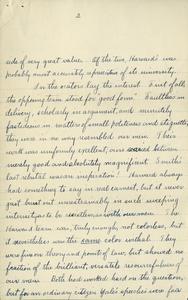 2
side of very great value. Of the two, Harvard's was
probably most accurately expressive of its university.
In the orators lay the interest. First of all
the opposing team stood for "good form." Faultless in
delivery, scholarly in argument, and minutely
fastidious in matters of small politeness and etiquette,
they were in no way resembled our men. Their
work was uniformly excellent, our varied between
merely good and absolutely magnificent. Smith's
last rebuttal was an inspiration! Harvard always
had something to say in real earnest, but it never
got burst out unrestrainedly in such sweeping
intensity as to be resistless with our men. The
Harvard team was, truly enough, not colorless, but
it nevertheless was the same color withal. They
were fine on theory and points of law, but showed no
fraction of the brilliant, versatile resourcefulness of
our men. Both had worked hard on the question,
but for an ordinary citizen Yale's speeches were far